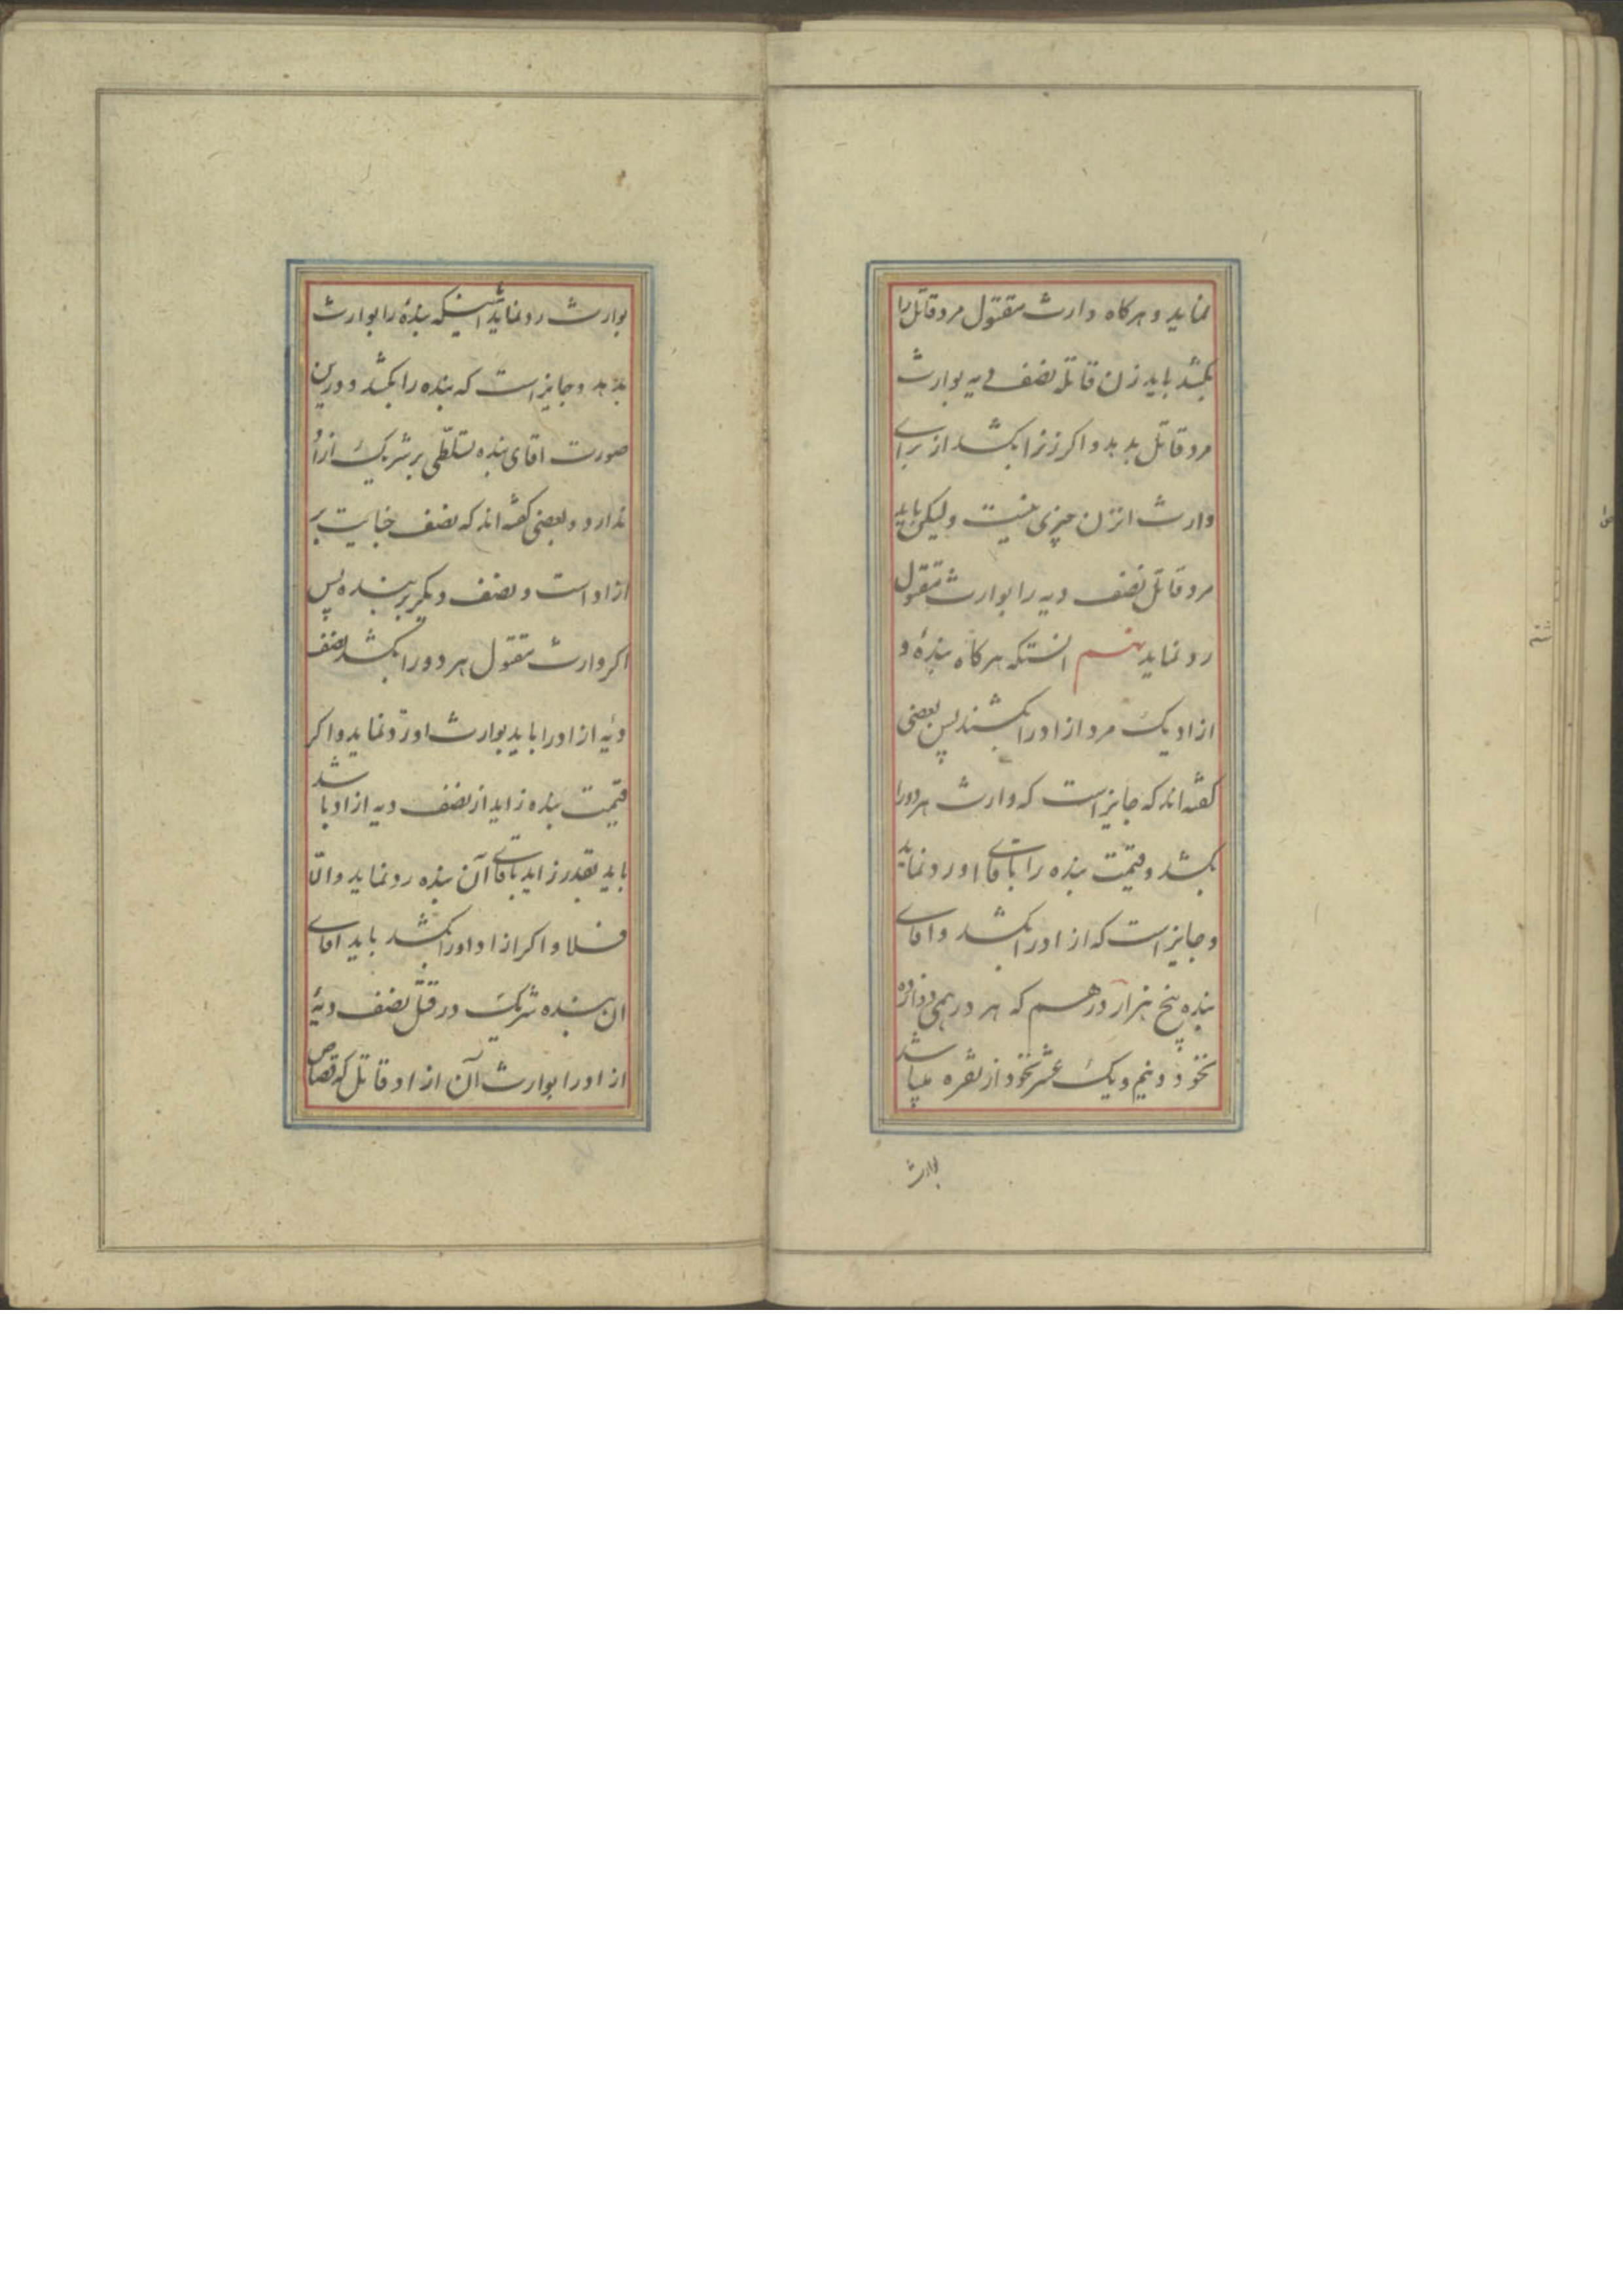 نماید و هرکاه وارث مقتول مرد قاتل را
بکشد باید زن قاتله نصف دیه بوارث
مرد قاتل بدهد و اکر زنرا بکشد از برای
وارث انزن چیزی نیست ولیکن باید
مرد قاتل نصف دیه را بوارث مقتول
رد نماید نهم انستکه هرکاه بندهٔ و
ازاد یک مرد ازاد را بکشند پس بعضی
کفته اند که جایز است که وارث هر دو را
بکشد و قیمت بنده را باقای او رد نماید
و جایز است که ازاد را بکشد و اقای
بنده پنج هزار درهم که هر درهمی دوازده
نخود و نیم و یک عشر نخود از نقره میباشد
بوارث
بوارث رد نماید اینکه بندهٔ را بوارث
بدهد و جایز است که بنده را بکشد و درین
صورت اقای بنده تسلطی بر شریک ازاد
ندارد و بعضی کفته اند که نصف جنایت بر
ازاد است و نصف دیکر بر بنده پس
اکر وارث مقتول هر دو را بکشد نصف
دیهٔ ازاد را باید بوارث او رد نماید و اکر
قیمت بنده زاید از نصف دیه ازاد باشد
باید بقدر زاید باقای آن بنده رد نماید و الّا
فلا و اکر ازاد او را بکشد باید اقای
ان بنده شریک در قتل نصف دیهٔ
ازاد را بوارث آن ازاد قاتل که قصاص